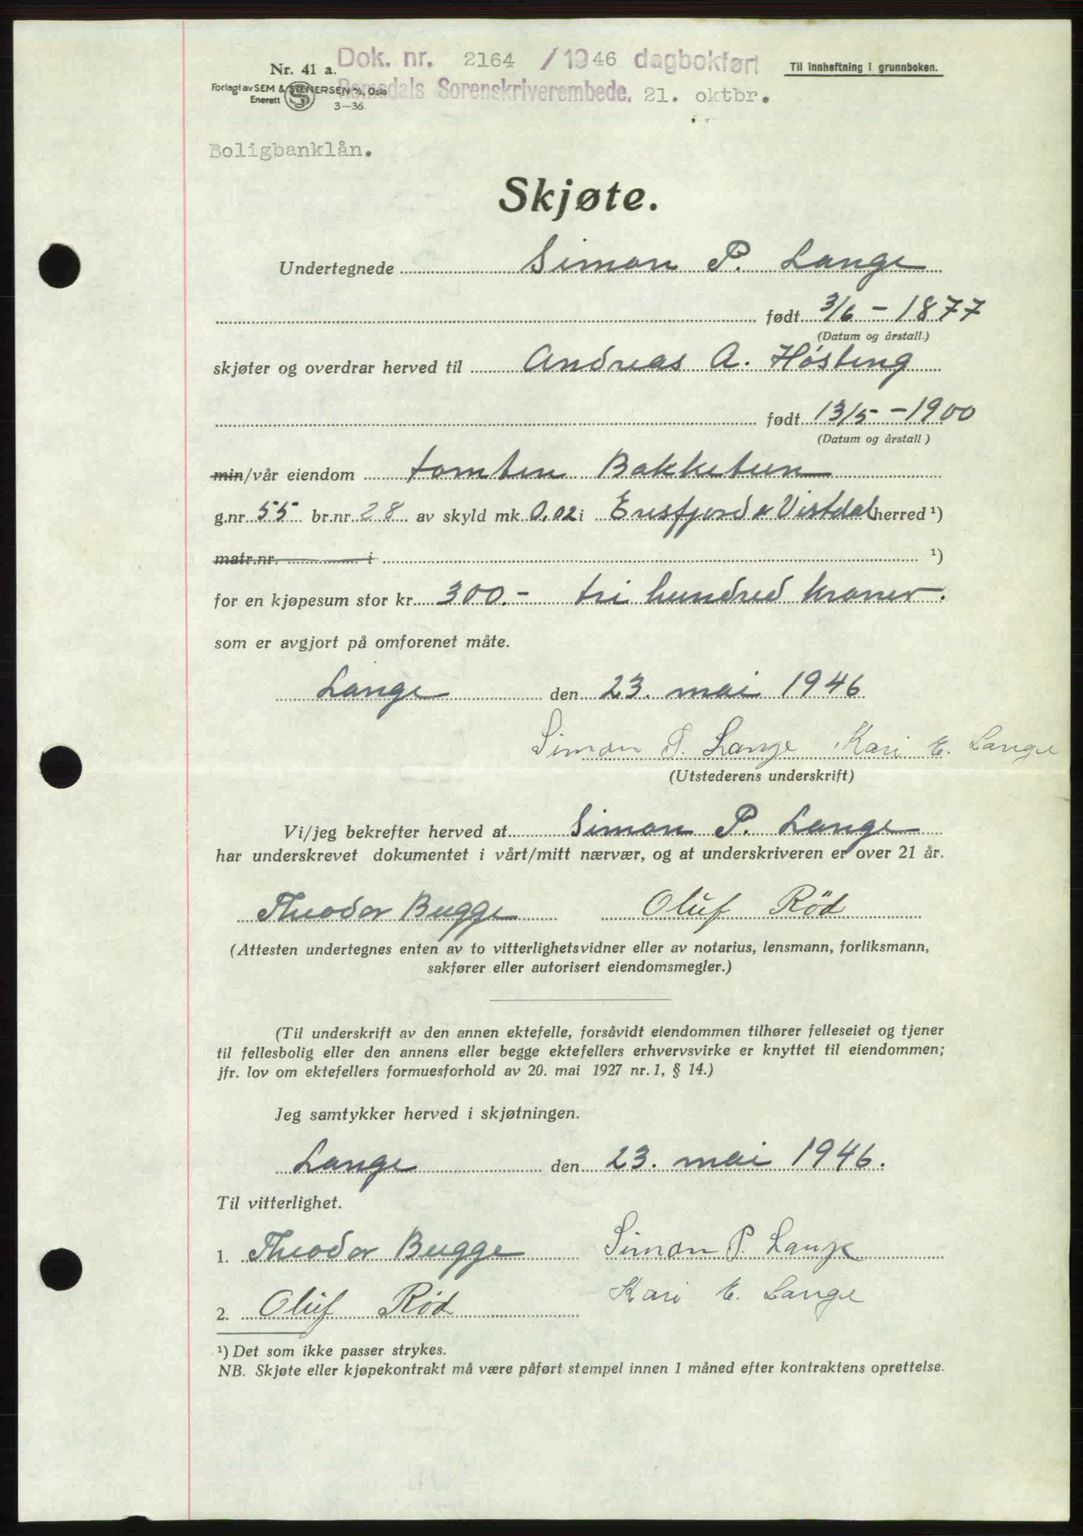 Dok. nr. 2164 /1946 dagbokført
Til innheftning i grunnboken.
Nr. 41 a.
Forlagt av SEM & STENERSEN A/S, Oslo
Romsdals Sorenskriverembede, 21. oktbr.
Enerett
3-36
Boligbanklån.
Skjøte.
Undertegnede Simon P. Lange
født 3/6 - 1877
(Datum og årstall.)
skjøter og overdrar herved til Andreas A. Høsteng
født 13/5 - 1900
(Datum og årstall)
min/vår eiendom tomten Bakketun
g.nr. 55 br.nr. 28 av skyld mk. 0,02 i Eresfjord & Vistdal herred ¹)
matr.nr. i ¹)
for en kjøpesum stor kr. 300.- tri hundred kroner.
som er avgjort på omforenet måte.
Lange den 23. mai 1946
Simon P. Lange Kari E. Lange
(Utstederens underskrift)
Vi/jeg bekrefter herved at Simon P. Lange
har underskrevet dokumentet i vårt/mitt nærvær, og at underskriveren er over 21 år.
Theodor Bugge Oluf Rød
(Attesten undertegnes enten av to vitterlighetsvidner eller av notarius, lensmann, forliksmann,
sakfører eller autorisert eiendomsmegler.)
(Til underskrift av den annen ektefelle, forsåvidt eiendommen tilhører felleseiet og tjener
til fellesbolig eller den annens eller begge ektefellers erhvervsvirke er knyttet til eiendommen;
jfr. lov om ektefellers formuesforhold av 20. mai 1927 nr. 1, § 14.)
Jeg samtykker herved i skjøtningen.
Lange den 23. mai 1946.
Til vitterlighet.
1. Theodor Bugge Simon P. Lange
Kari E. Lange
2. Oluf Rød
¹) Det som ikke passer strykes.
NB. Skjøte eller kjøpekontrakt må være påført stempel innen 1 måned efter kontraktens oprettelse.